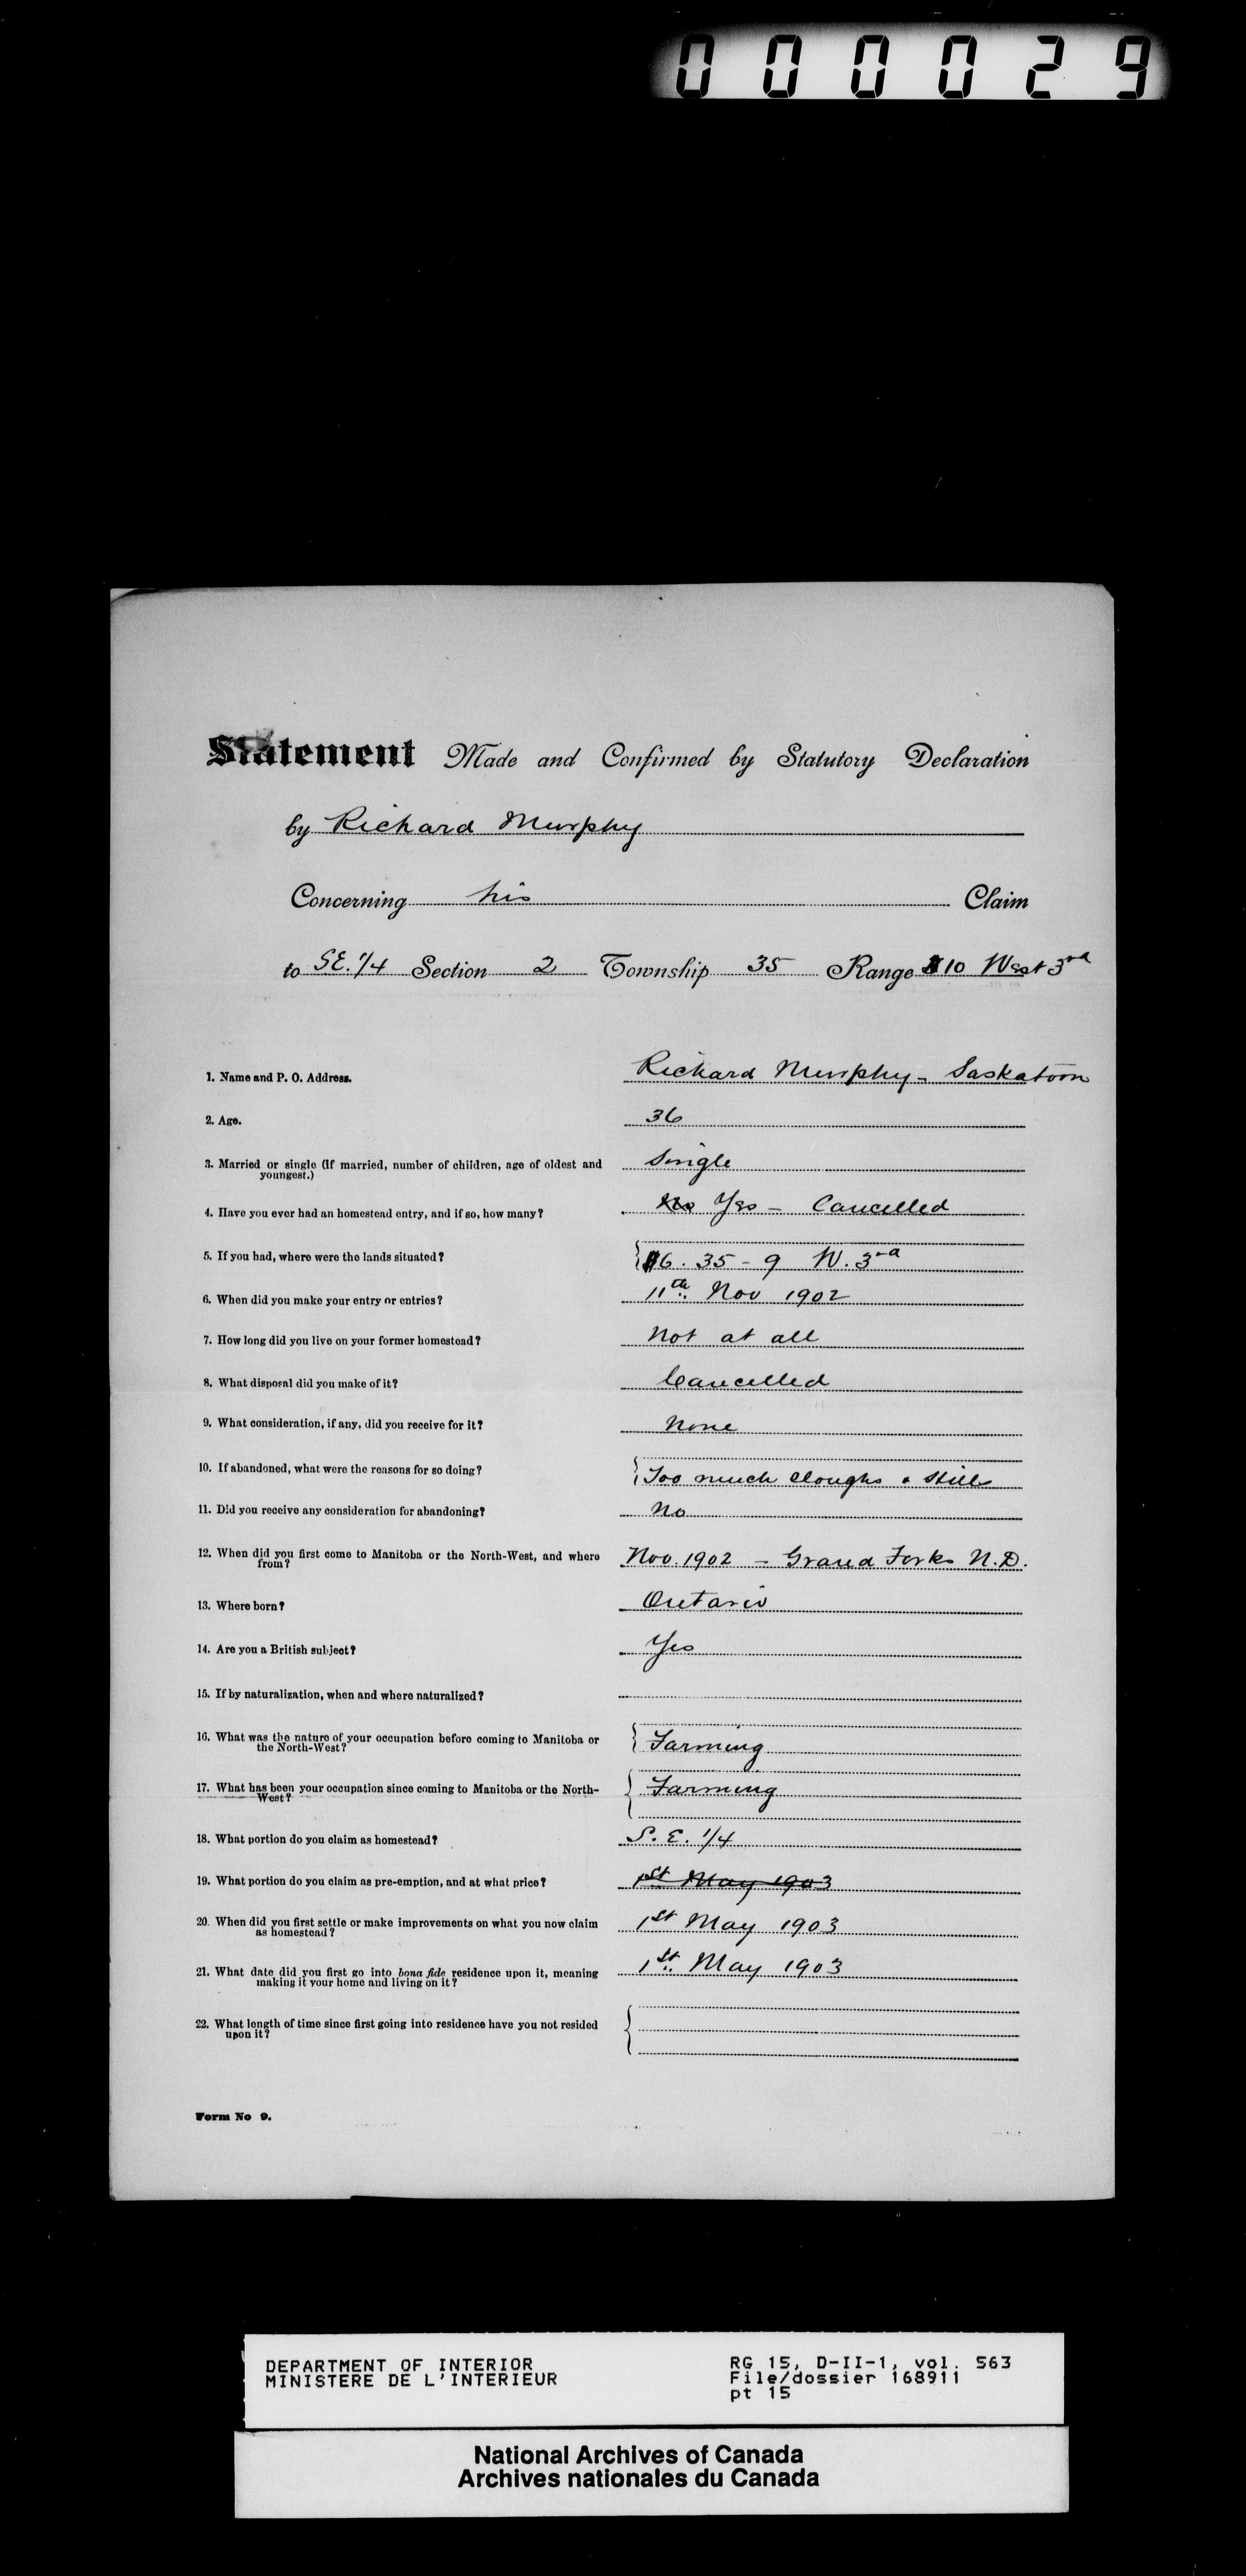 000029
Statement Made and Confirmed by Statutory Declaration
by Richard Murphy
Concerning his Claim
to SE. 1/4 Section 2 Township 35 Range 10 West 3rd
1. Name and P. O. Address. Richard Murphy - Saskatoon
2. Age. 36
3. Married or single (If married, number of children, age of oldest and Single
youngest.)
4. Have you ever had an homestead entry, and if so, how many? No Yes - Cancelled
5. If you had, where were the lands situated? 6. 35 - 9 W. 3rd
6. When did you make your entry or entries? 11th Nov 1902
7. How long did you live on your former homestead? Not at all
8. What disposal did you make of it? Cancelled
9. What consideration, if any, did you receive for it? None
10. If abandoned, what were the reasons for so doing? Too much sloughs &
11. Did you receive any consideration for abandoning? No
12. When did you first come to Manitoba or the North-West, and where Nov. 1902 - Grand Forks N.D.
from?
13. Where born? Ontario
14. Are you a British subject? Yes
15. If by naturalization, when and where naturalized?
16. What was the nature of your occupation before coming to Manitoba or Farming
the North-West?
17. What has been your occupation since coming to Manitoba or the North- Farming
West?
18. What portion do you claim as homestead? S. E. 1/4
19. What portion do you claim as pre-emption, and at what price? 1st May 1903
20. When did you first settle or make improvements on what you now claim 1st May 1903
as homestead?
21. What date did you first go into bona fide residence upon it, meaning 1st. May 1903
making it your home and living on it?
22. What length of time since first going into residence have you not resided
upon it?
Form No 9.
DEPARTMENT OF INTERIOR RG 15, D-II-1, vol. 563
MINISTERE DE L'INTERIEUR File/dossier 168911
pt 15
National Archives of Canada
Archives nationales du Canada